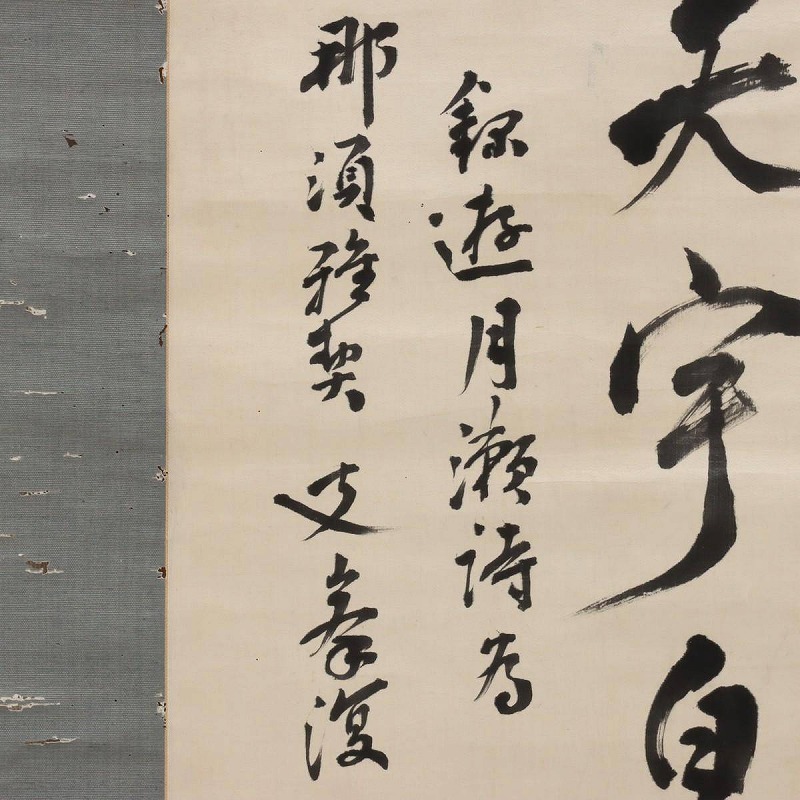 天宇自
録遊月瀬詩為
那須雅契 支峯復